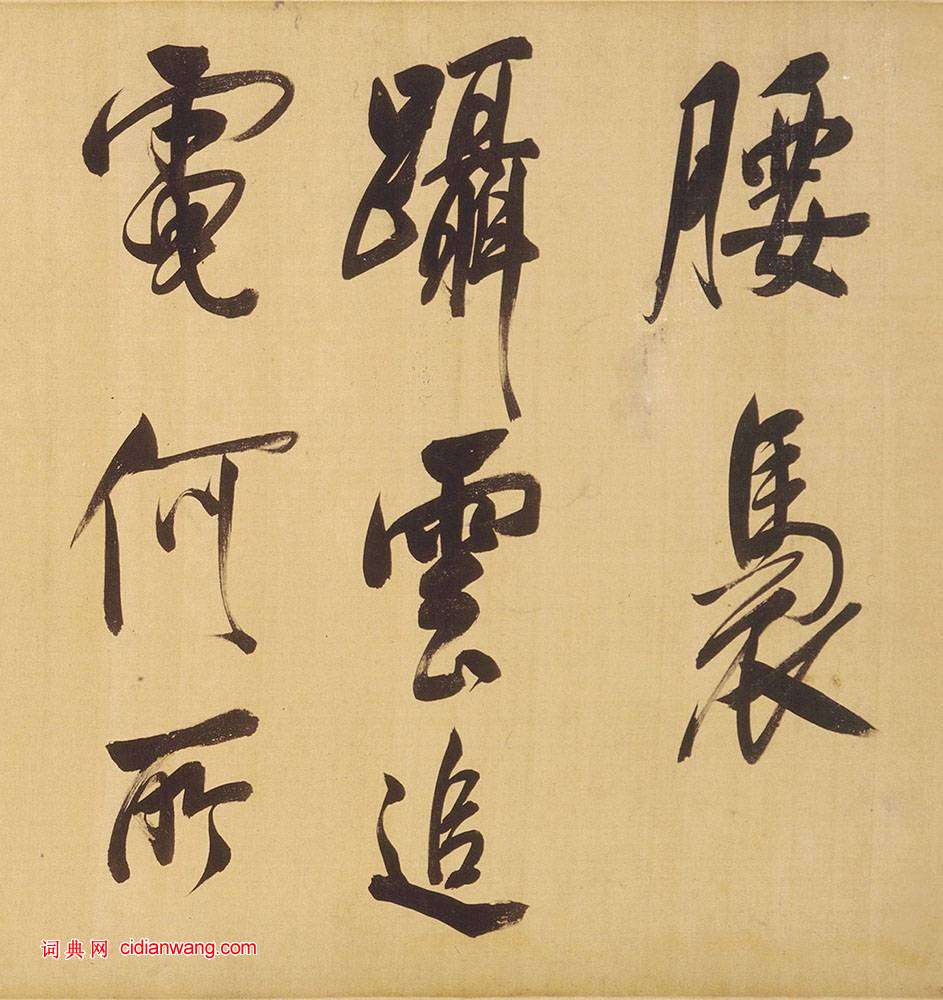 腰褭
躡雲追
電何所
词典网 cidianwang.com